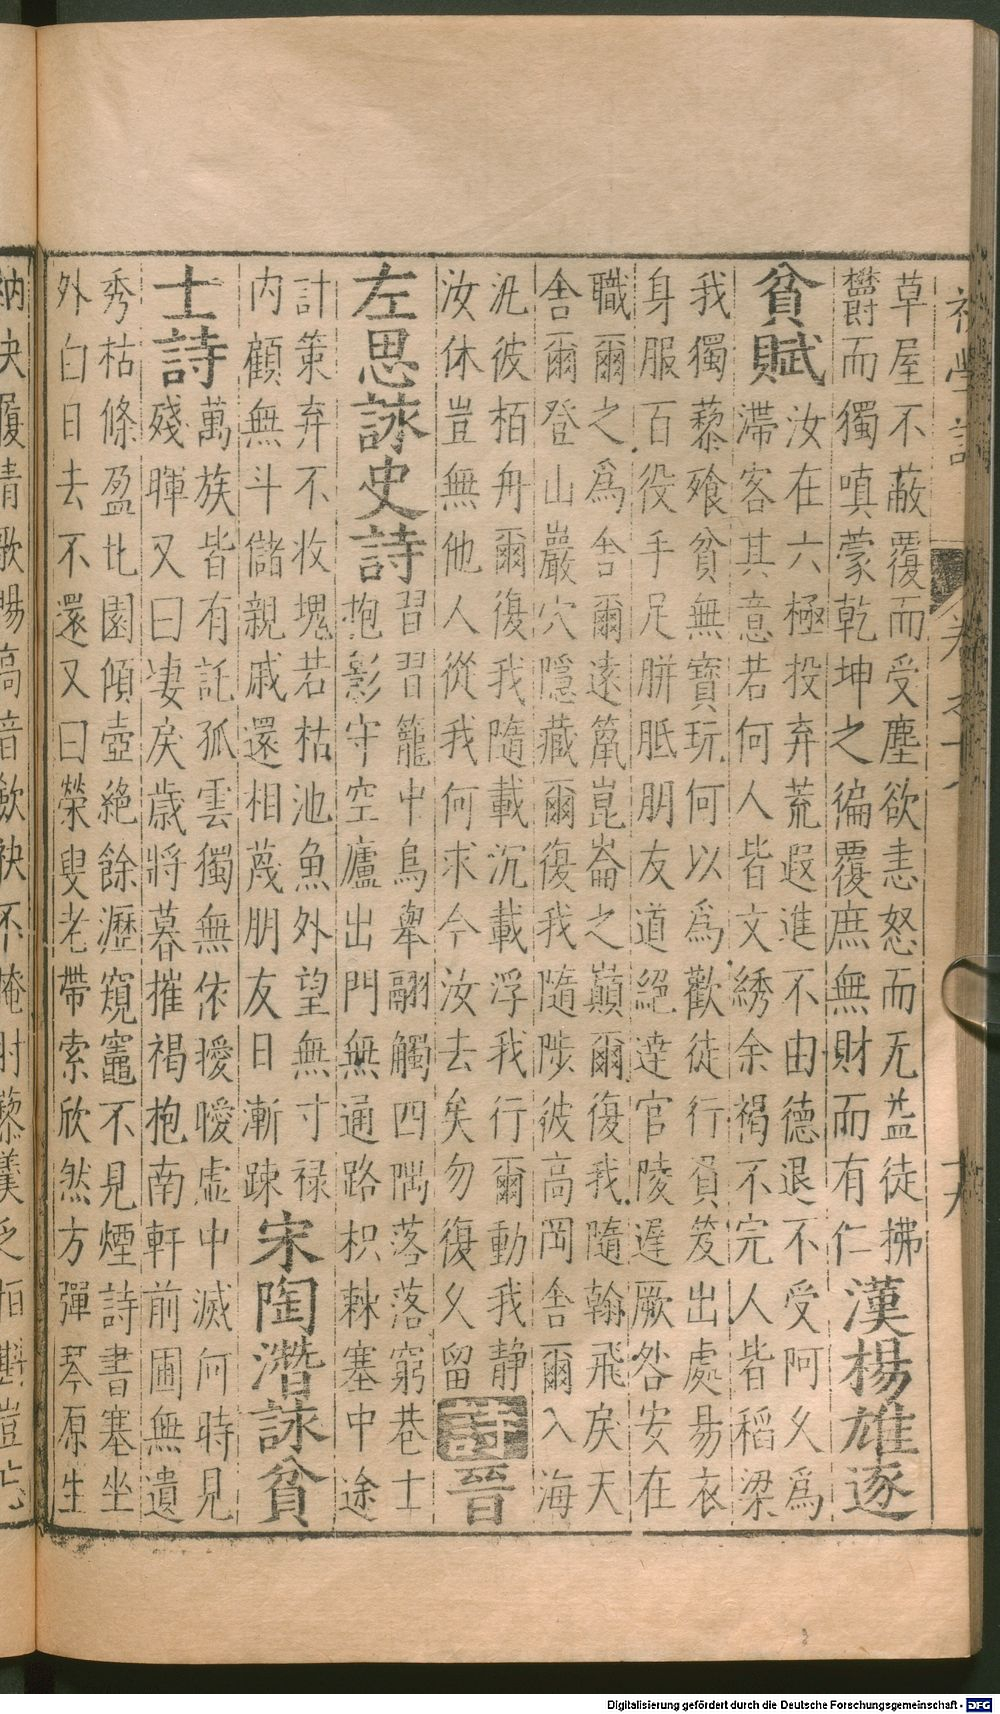 草屋不蔽覆而受塵欲恚怒而无益徒拂
鬱而獨嗔蒙乾坤之徧覆庶無財而有仁
漢楊雄逐
貧賦
汝在六極投弃荒遐進不由德退不受阿久為
滯客其意若何人皆文綉余褐不完人皆稻梁
我獨藜飱貧無寶玩何以為歡徒行貧笈出處昜衣
身服百役手足胼胝朋友道絕逹官陵遲厥咎安在
職爾之為舍爾遠竄崑崙之巔爾復我隨翰飛戾天
舍爾登山巖穴隱藏爾復我隨陟彼高岡舍爾入海
汎彼栢舟爾復我隨載沉載浮我行爾動我静
汝休豈無他人從我何求今汝去矣勿復久留
詩晉
左思詠史詩
習習籠中鳥舉翮觸四隅落落窮巷士
抱影守空廬出門無通路枳棘塞中途
計策弃不收塊若枯池魚外望無寸禄
内顧無斗儲親戚還相蔑朋友日漸踈
宋陶潛詠貧
士詩
萬族皆有託孤雲獨無依曖曖虛中滅何時見
殘暉又曰凄戾歲將暮摧褐抱南軒前圃無遺
秀枯條盈北園傾壺絶餘瀝窺竈不見煙詩書塞坐
外白日去不還又曰榮叟老帶索欣然方彈琴原生
Digitalisierung gefördert durch die Deutsche Forschungsgemeinschaft - DFG